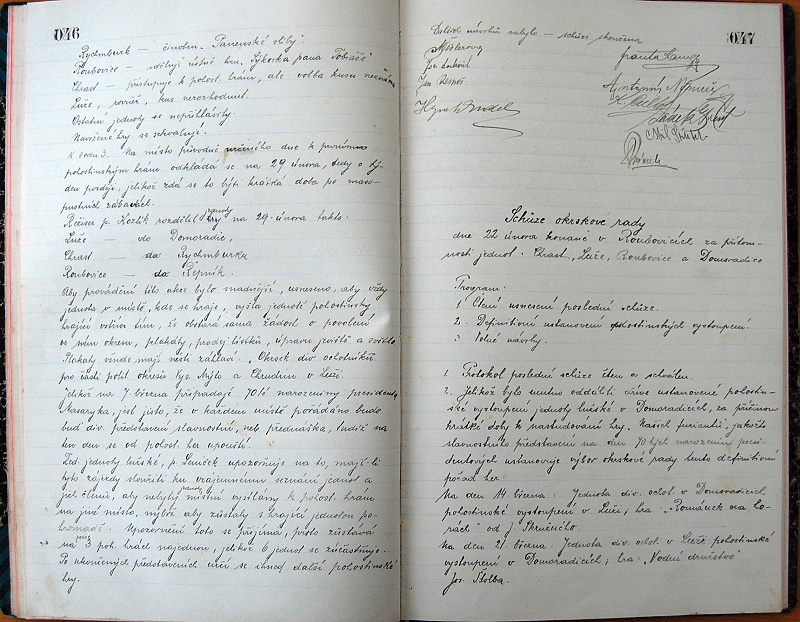 046
Rychmburk – činohru „Panenské sliby“
Roubovice – sdělují ústně hru „Sýkorka pana Tobiáše“
Chrast – přistupuje k polost. hrám, ale volba kusu neznáma
Luže, rovněž, kus nerozhodnut.
Ostatní jednoty se nepřihlásily.
Navržené hry se schvaluje.
K bodu 3. Na místo původně určeného dne k prvnímu
polostinským hrám odkládá se na 29 února, tedy o tý-
den později, jelikož zdá se to býti krátká doba po maso-
pustních zábavách.
Režiser p. Kozlík rozdělil hry na 29. února takto:
Luže – do Domoradic,
Chrast – do Rychmburka
Roubovice – do Řepník.
Aby provádění této akce bylo snadnější, usneseno, aby vždy
jednota v místě, kde se hraje, vyšla jednotě polostinsky
hrající vstříc tím, že obstará sama žádost o povolení
ve svém okresu, plakáty, prodej lístků, úpravu jeviště a světlo.
Plakáty všude mají nésti záhlaví: „Okrsek div. ochotníků
pro části polit. okresů Vys. Mýto a Chrudim v Luži.
Jelikož na 7. března připadají 70té narozeniny presidenta
Masaryka, jest jisto, že v každém místě pořádáno bude
buď div. představení slavnostní, neb přednáška, tudíž na
ten den se od polost. her upouští.
Řed. jednoty lužské, p. upozorňuje na to, mají-li
tyto zájezdy sloužiti ku vzájemnému seznání jednot a
jich členů, aby nebyly místní vysílány k polost. hrám
na jiné místo, nýbrž aby zůstaly s hrající jednotou po-
hromadě. Upozornění toto se přijímá, proto zůstává
na 3 pol. hrách najednou, jelikož 6 jednot se zúčastňuje.
Po ukončených představeních určí se ihned další polostinské
hry.
047
Dalších návrhů nebylo – schůze skončena
Schůze okrskové rady
dne 22 února konané v Roubovicích za přítom-
nosti jednot: Chrast, Luže, Roubovice a Domoradice
Program:
1. Čtení usnesení poslední schůze.
2. Definitivní ustanovení polostinských vystoupení.
3. Volné návrhy.
1. Protokol poslední schůze čten a schválen.
2. Jelikož bylo nutno oddáliti dříve ustanovené polostin-
ské vystoupení jednoty lužské v Domoradicích, za příčinou
krátké doby k nastudování hry „Našich furiantů“, jakožto
slavnostního představení na den 70tých narozenin presi-
dentových ustanovuje výbor okrskové rady tento definitivní
pořad her:
Na den 14 března: Jednota div. ochot. v Domoradicích
polostinské vystoupení v Luži, hra: „Románek na ho-
rách“ od J. Skružného.
Na den 21. března: Jednota div. ochot. v Luži polostinské
vystoupení v Domoradicích; hra: „Vodní družstvo“
Jos. Štolba.